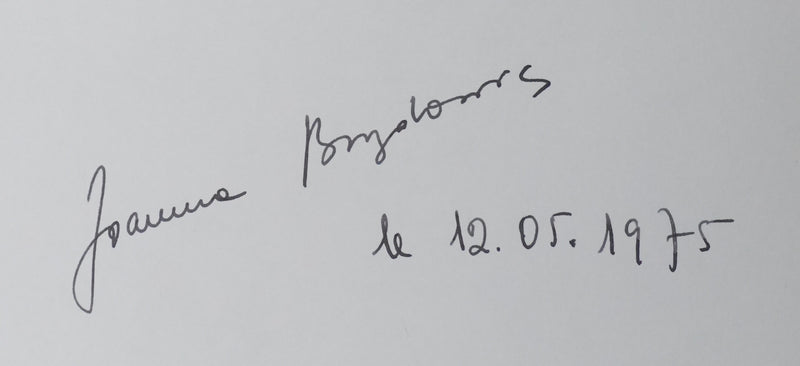 Joanna Bruzdowicz
le 12.05.1975